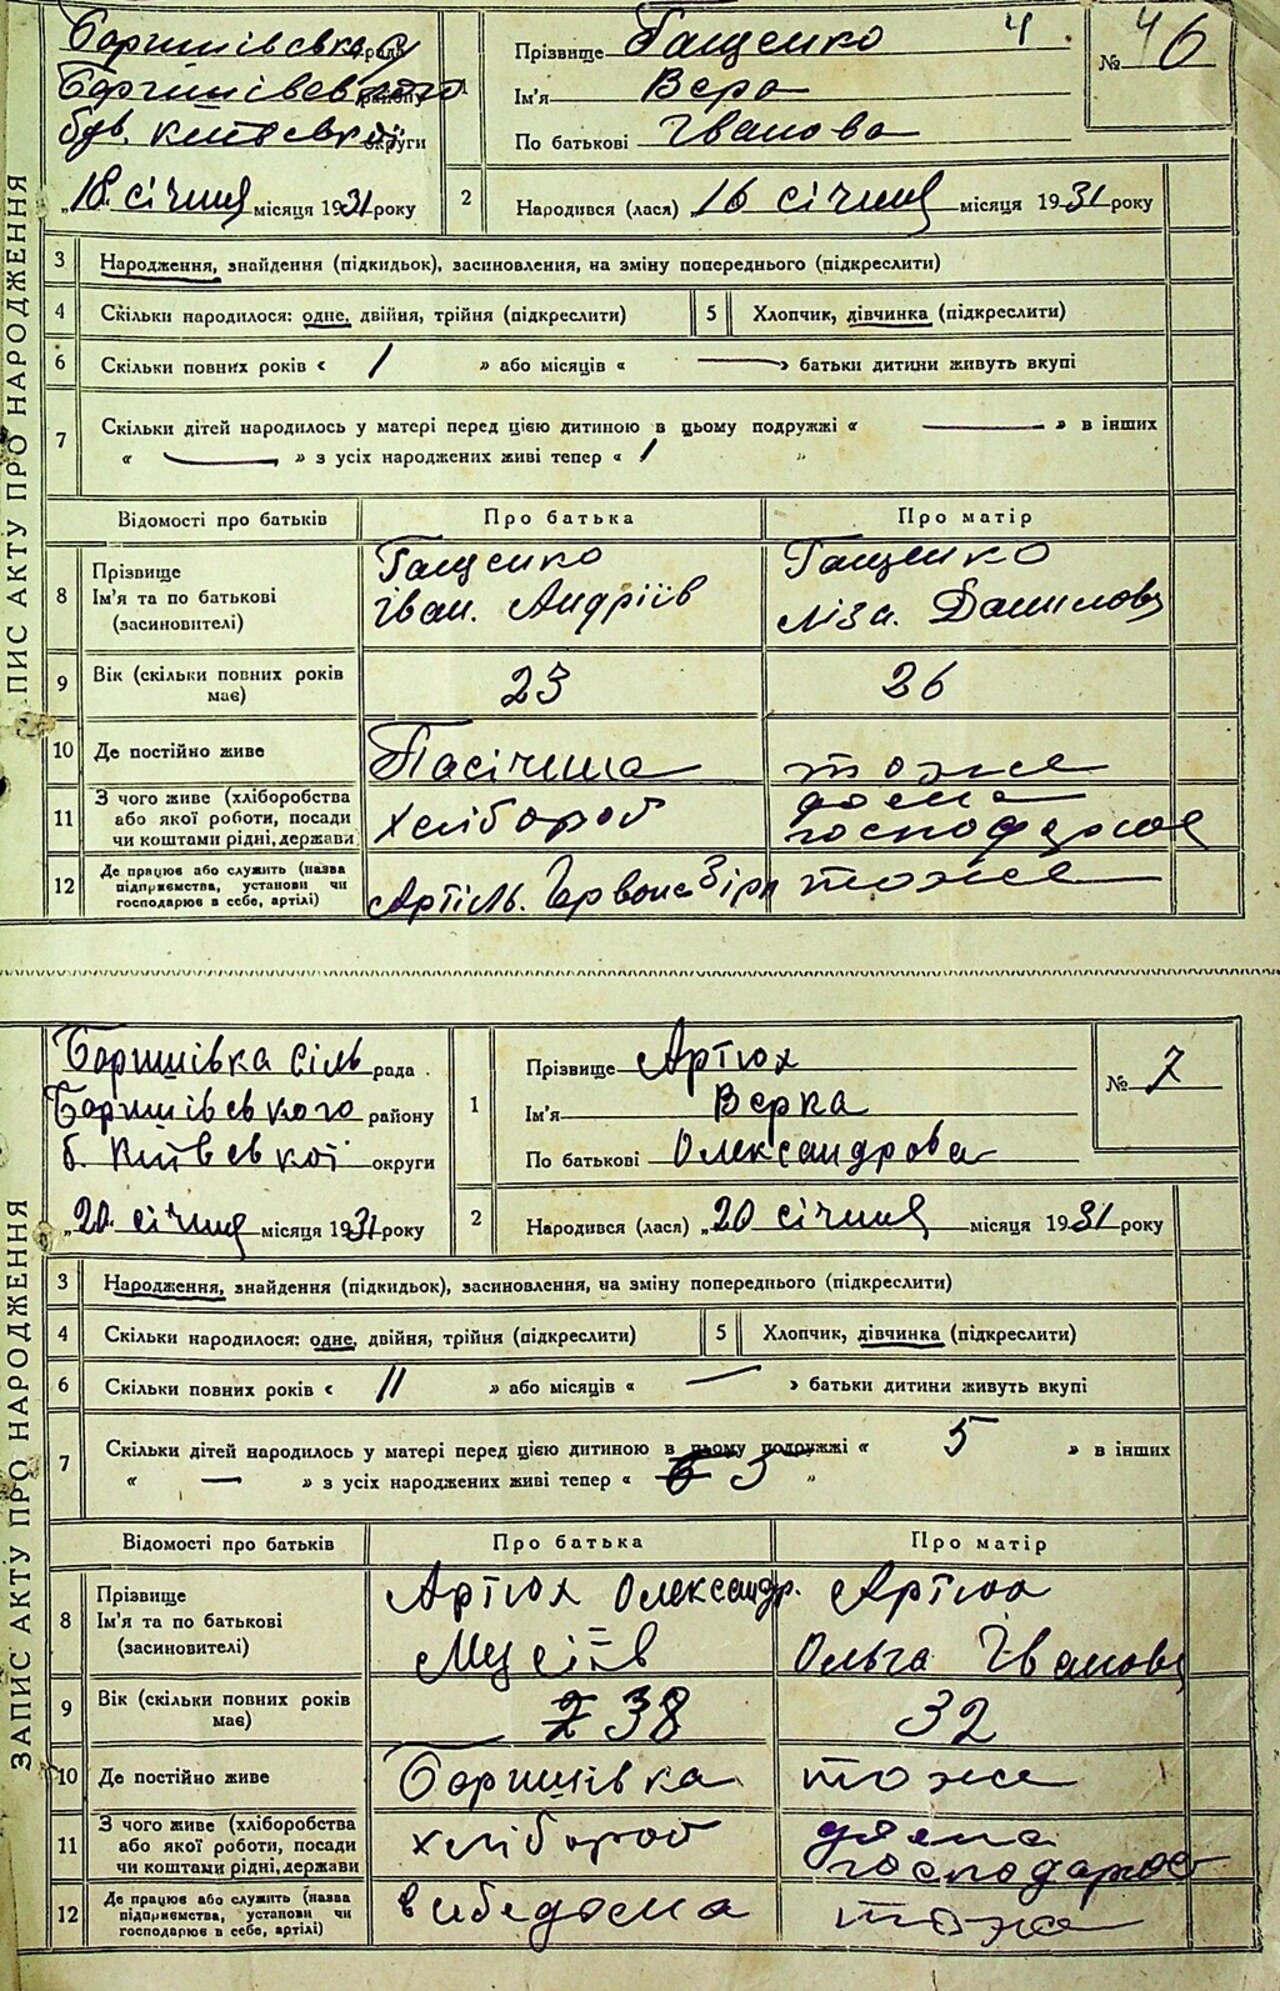 ПИС АКТУ ПРО НАРОДЖЕННЯ
Боришівська рада
Боришівського району
був. Київської округи
„18. січня місяця 1931 року
1
Прізвище Гащенко
Ім'я Вера
По батькові Іванова
№ 6
2 Народився (лася) „16 січня місяця 1931 року
3 Народження, знайдення (підкидьок), засиновлення, на зміну попереднього (підкреслити)
4 Скільки народилося: одне, двійня, трійня (підкреслити) 5 Хлопчик, дівчинка (підкреслити)
6 Скільки повних років « 1 » або місяців « — » батьки дитини живуть вкупі
7 Скільки дітей народилось у матері перед цією дитиною в цьому подружжі « — » в інших
« — » з усіх народжених живі тепер « 1 „
Відомості про батьків Про батька Про матір
8 Прізвище Ім'я та по батькові (засиновителі)
Гащенко Гащенко
Іван. Андріїв Ліза. Данилова
9 Вік (скільки повних років має) 23 26
10 Де постійно живе Пасічна тоже
11 З чого живе (хліборобства або якої роботи, посади чи коштами рідні, держави
Хлібороб
12 Де працює або служить (назва підприємства, установи чи господарює в себе, артілі)
Артіль. Червона Зірка тоже
ЗАПИС АКТУ ПРО НАРОДЖЕННЯ
Боришівка Сіль рада
Боришівського району
б. Київської округи
„20. січня місяця 1931 року
1
Прізвище Артюх
Ім'я Вєрка
По батькові Олександрова
№ 7
2 Народився (лася) „20 січня місяця 1931 року
3 Народження, знайдення (підкидьок), засиновлення, на зміну попереднього (підкреслити)
4 Скільки народилося: одне, двійня, трійня (підкреслити) 5 Хлопчик, дівчинка (підкреслити)
6 Скільки повних років « 11 » або місяців « — » батьки дитини живуть вкупі
7 Скільки дітей народилось у матері перед цією дитиною в цьому подружжі « 5 » в інших
« — » з усіх народжених живі тепер « 3 „
Відомості про батьків Про батька Про матір
8 Прізвище Ім'я та по батькові (засиновителі)
Артюх Олександр. Артюх
Мусіїв Ольга Іванова
9 Вік (скільки повних років має) 38 32
10 Де постійно живе Боришівка тоже
11 З чого живе (хліборобства або якої роботи, посади чи коштами рідні, держави
хлібороб
12 Де працює або служить (назва підприємства, установи чи господарює в себе, артілі)
тоже